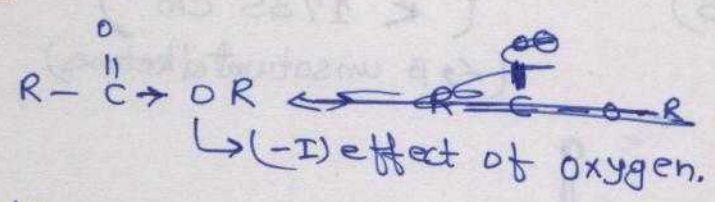 O
||
R - C → O R ↔
↳ (-I) effect of oxygen.